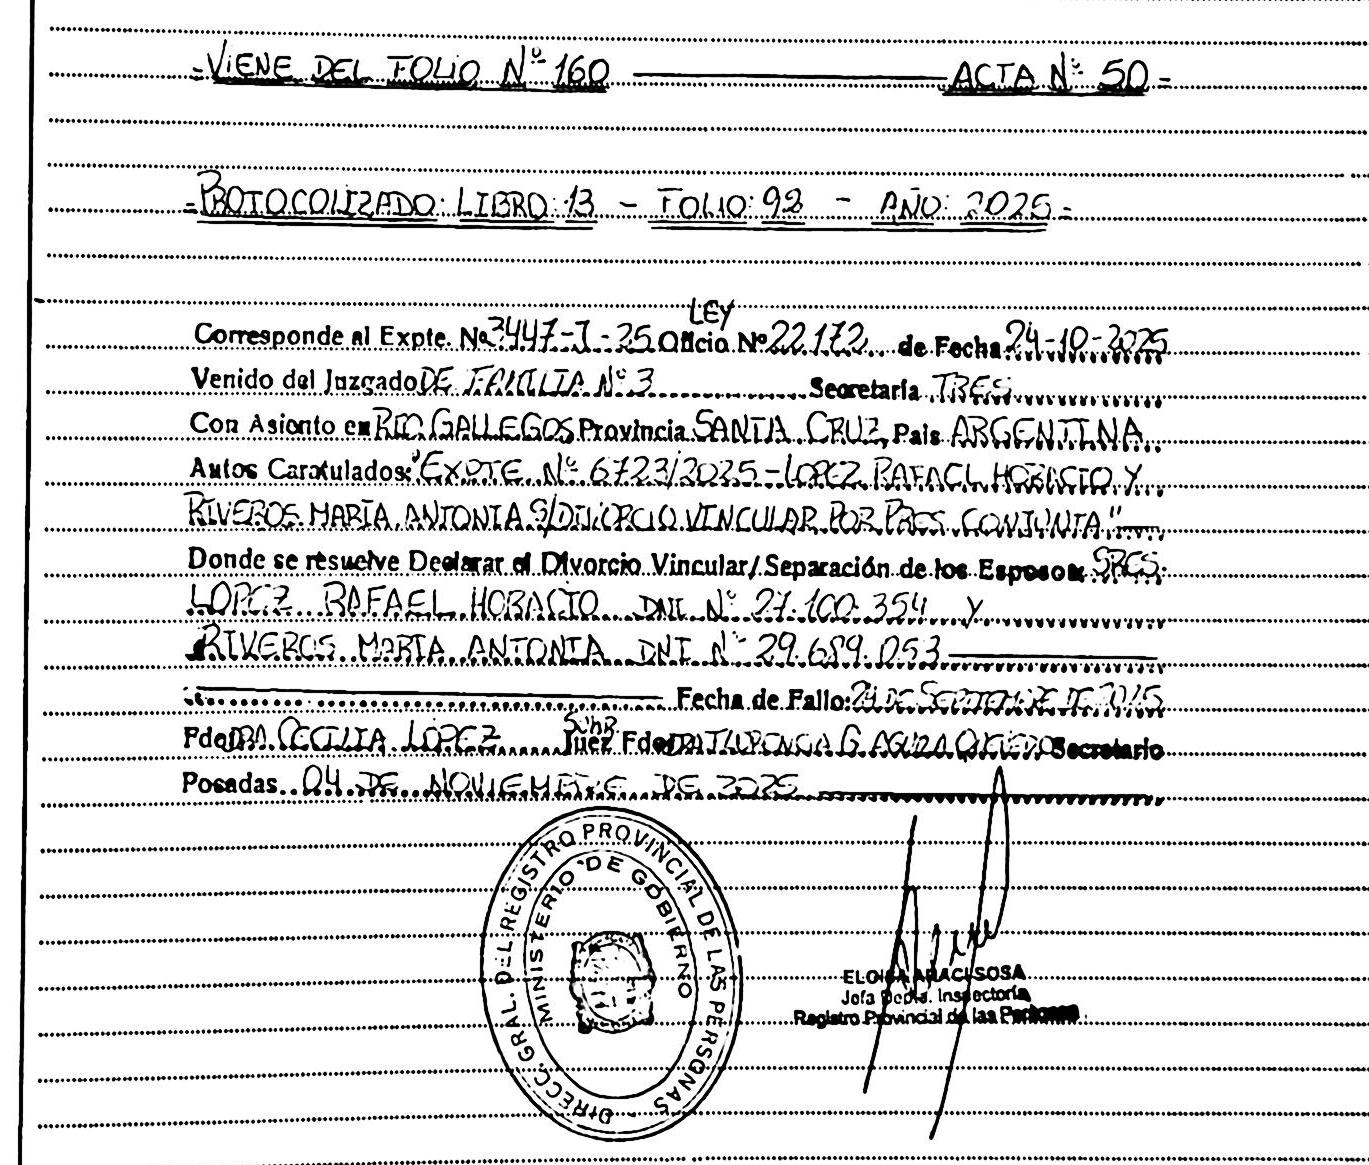 =VIENE DEL FOLIO Nº 160 ACTA Nº 50=
=PROTOCOLIZADO: LIBRO: 13 - FOLIO: 92 - AÑO: 2025=
LEY
Corresponde al Expte. Nº 3447-I-25 Oficio Nº 22.172 de Fecha 24-10-2025
Venido del Juzgado DE FAMILIA Nº 3 Secretaría TRES
Con Asiento en RIO GALLEGOS Provincia SANTA CRUZ, País ARGENTINA
Autos Caratulados: "EXPTE Nº 6723/2025-LOPEZ RAFAEL HORACIO Y
RIVEROS MARÍA ANTONIA S/DIVORCIO VINCULAR POR PRES. CONJUNTA"
Donde se resuelve Declarar el Divorcio Vincular/Separación de los Esposos: SRES.
LOPEZ RAFAEL HORACIO DNI Nº 27.100.354 Y
RIVEROS MARÍA ANTONIA DNI Nº 29.689.053
Fecha de Fallo: 24 DE SEPTIEMBRE DE 2025
SubR
Fdo: DRA CECILIA LOPEZ Juez Fdo: DRA G. Secretario
Posadas 04 DE NOVIEMBRE DE 2025
DIRECC. GRAL. DEL REGISTRO PROVINCIAL DE LAS PERSONAS -
MINISTERIO DE GOBIERNO
ELOISA ARACI SOSA
Jefa Depto. Inspectoría
Registro Provincial de las Personas